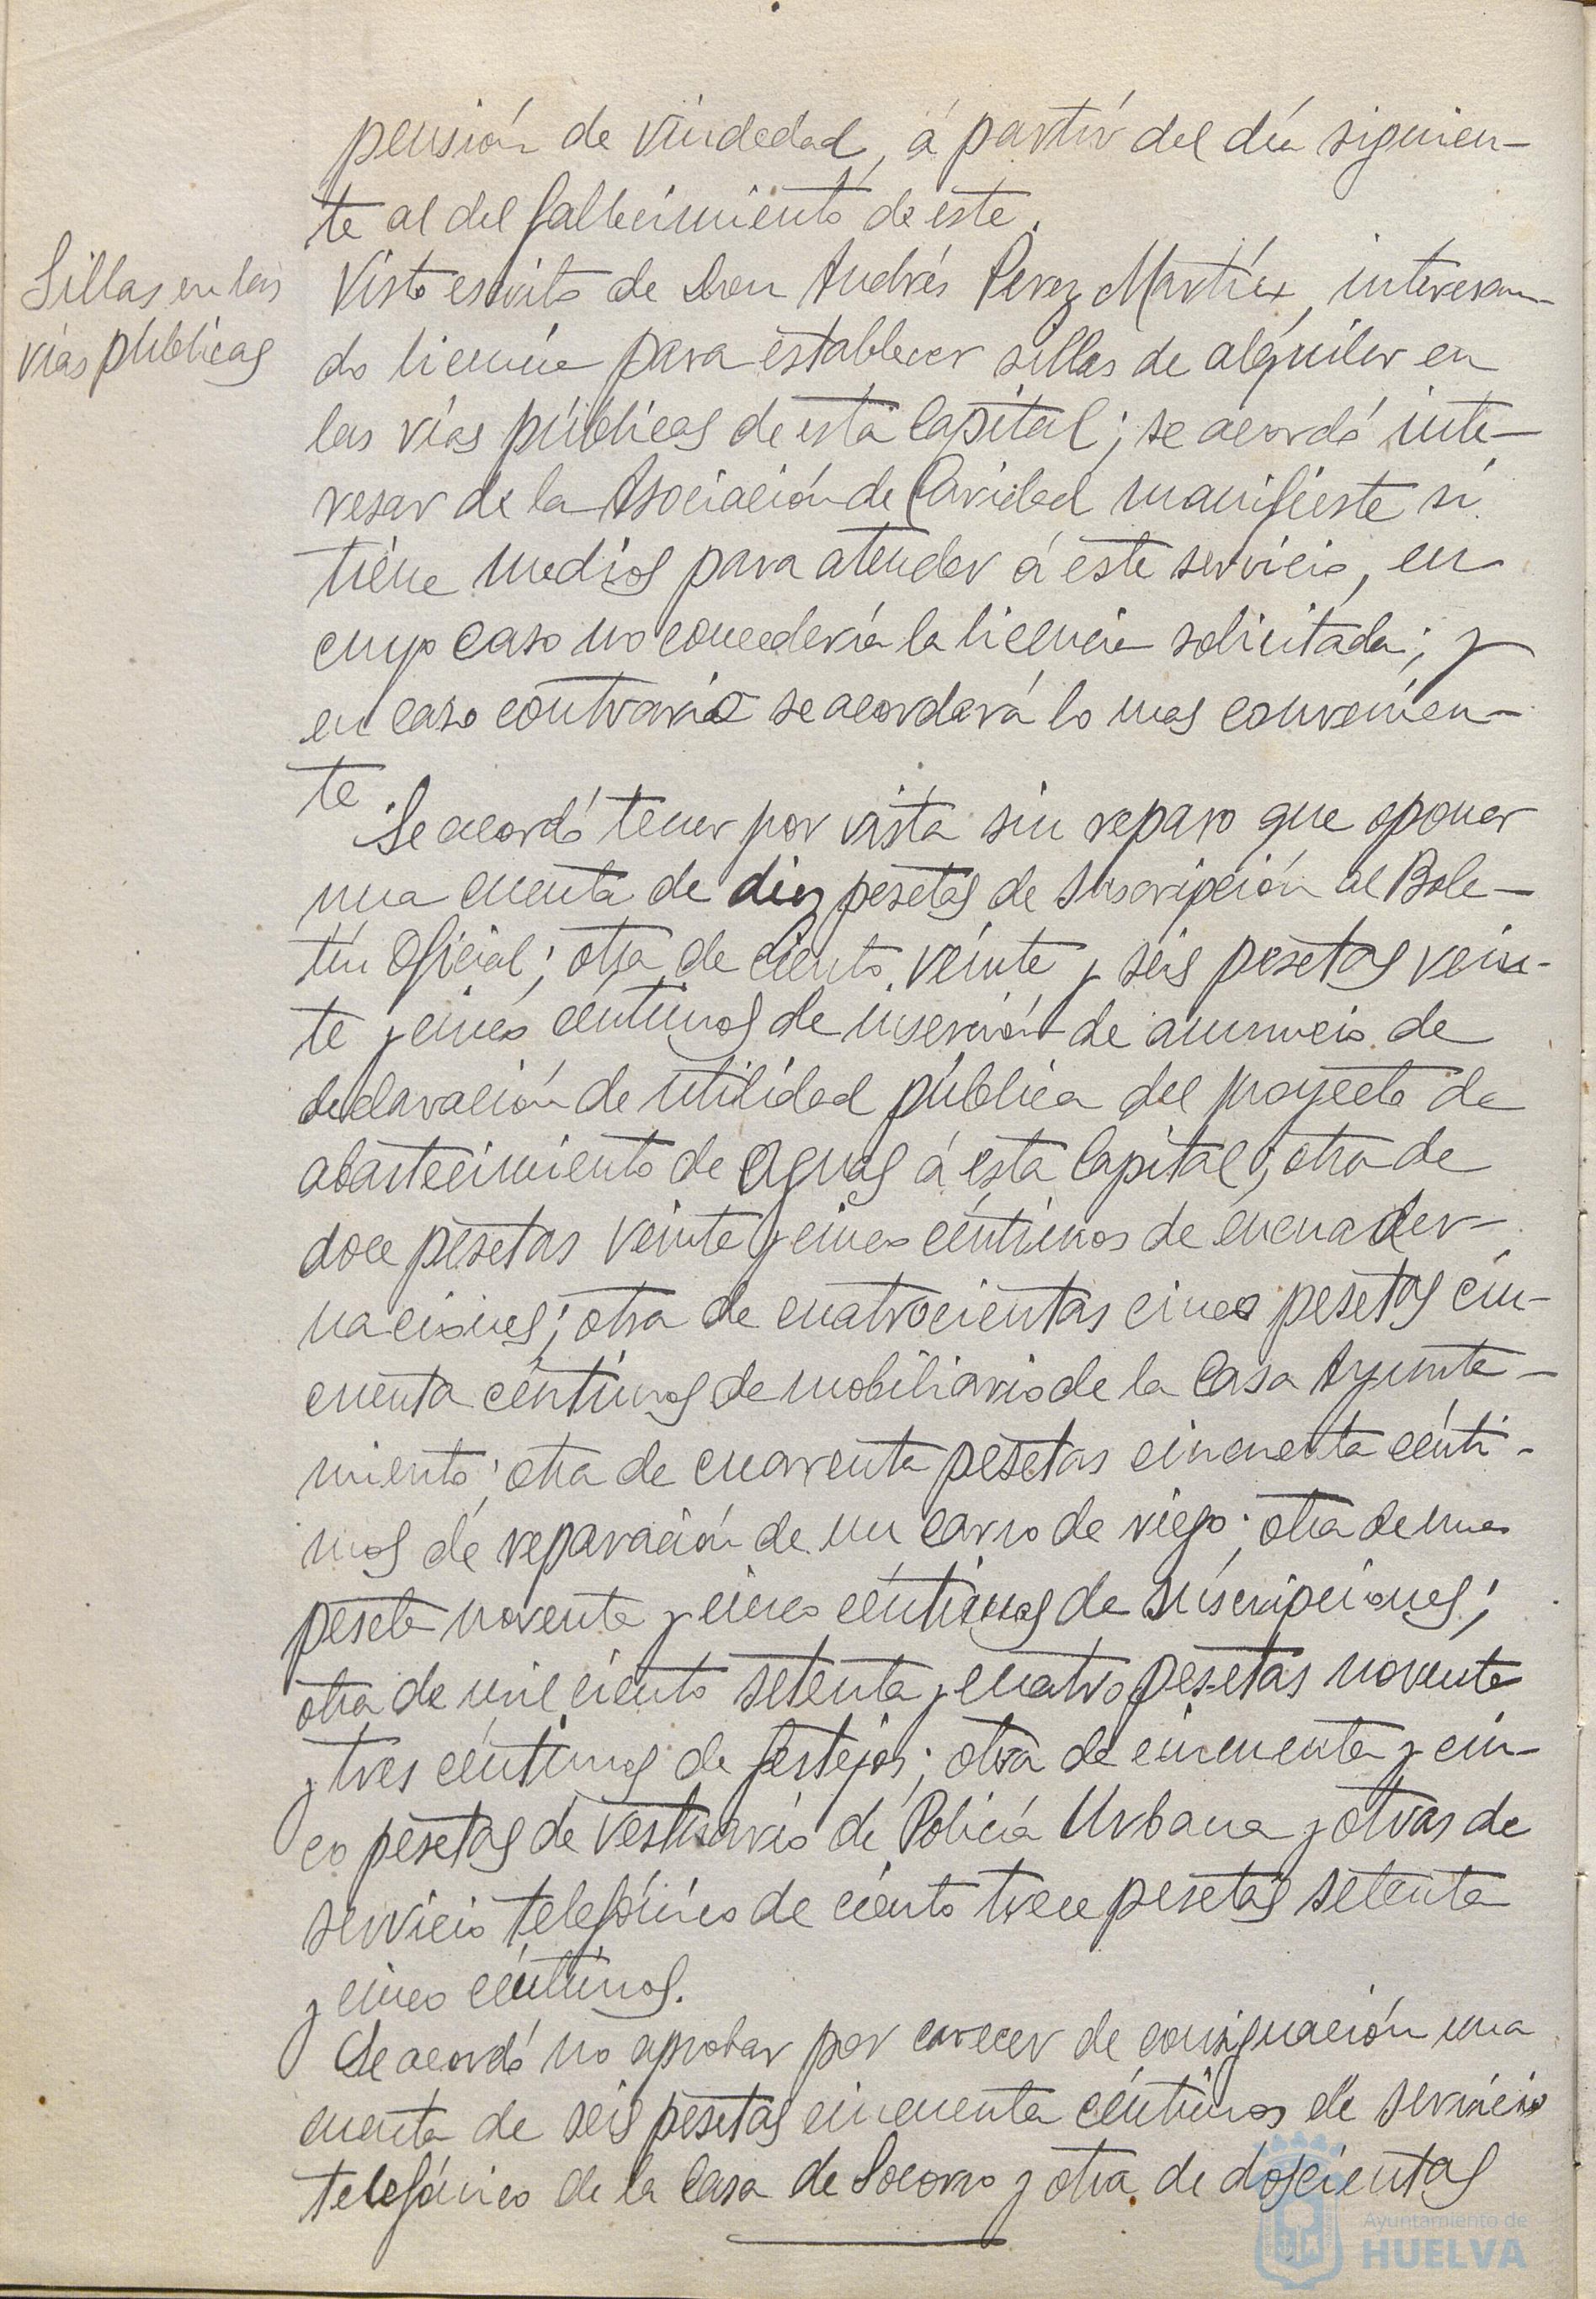 pensión de viudedad, á partir del día siguien-
te al del fallecimiento de este.
Sillas en las
vías públicas
Visto escrito de Don Andrés Perez Martíez, interesan-
do licencia para establecer sillas de alquiler en
las vías públicas de esta Capital; se acordó inte-
resar de la Asociación de Caridad manifieste si
tiene medios para atender á este servicio, en
cuyo caso no concedería la licencia solicitada; y
en caso contrario se acordará lo mas convenien-
te.
Se acordó tener por vista sin reparo que oponer
una cuenta de diez pesetas de suscripción al Bole-
tín Oficial; otra de ciento veinte y seis pesetas vein-
te y cinco céntimos de inserción de anuncio de
declaración de utilidad pública del proyecto de
abastecimiento de aguas á esta Capital; otra de
doce pesetas veinte y cinco céntimos de encuader-
naciones; otra de cuatrocientas cinco pesetas cin-
cuenta céntimos de mobiliario de la Casa Ayunta-
miento; otra de cuarenta pesetas cincuenta cénti-
mos de reparación de un carro de riego; otra de una
peseta noventa y cinco céntimos de suscripciones;
otra de mil ciento setenta y cuatro pesetas noventa
y tres céntimos de festejos; otra de cincuenta y cin-
co pesetas de vestuario de Policía Urbana y otras de
servicio telefónico de ciento trece pesetas setenta
y cinco céntimos.
Se acordó no aprobar por carecer de consignación una
cuenta de seis pesetas cincuenta céntimos de servicio
telefónico de la Casa de Socorro y otra de doscientas
Ayuntamiento de
HUELVA